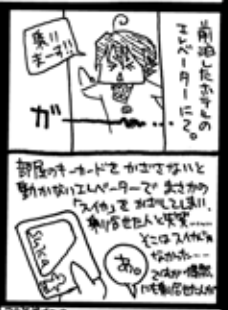 前泊したホテルの
エレベーターにて。
乗り
まーす!!
ガ
部屋のキーカードをかざさないと
動かないエレベーターでまさかの
「スイカ」をかざしてしまい、
乗り合せた人と失笑……
そこはスイカじゃ
なかった…
suica
あ。